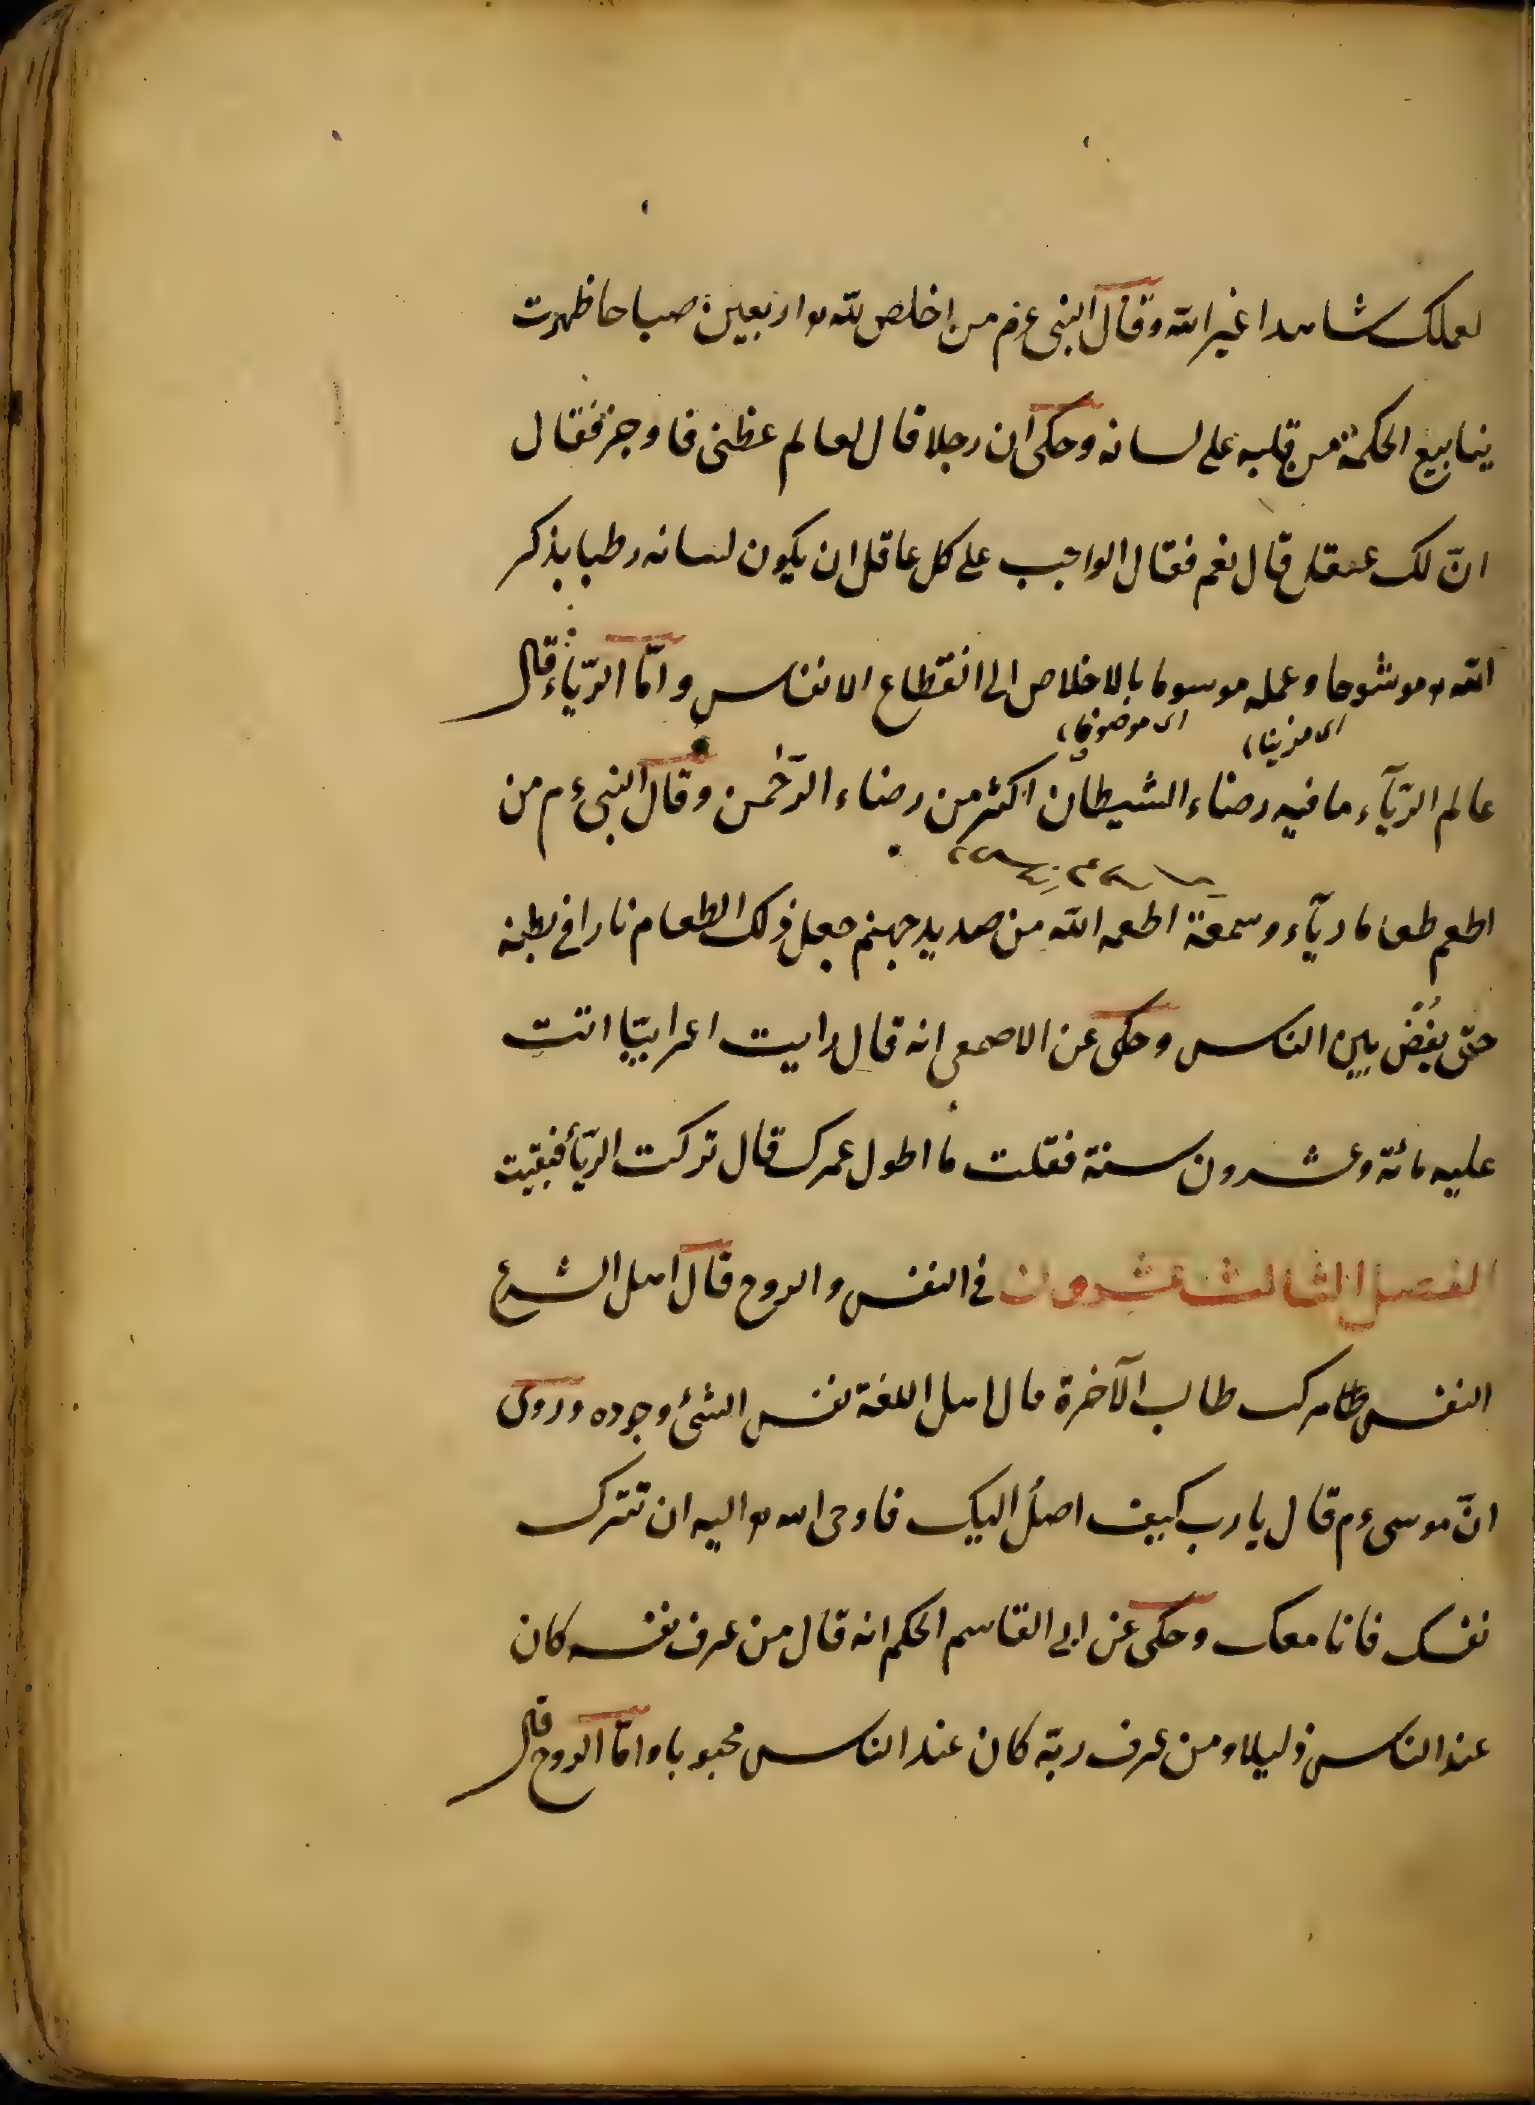 لعملك شاهدا غير الله وقال النبى عم من اخلص لله تع اربعين صباحا ظهرت
ينابيع الحكمة من قلبه على لسانه وحكى ان رجلا قال لعالم عظنى فاوجز فقال
انّ لك عقلا قال نعم فقال الواجب على كل عاقل ان يكون لسانه رطبا بذكر
الله تع موشوحا وعمله موسوما بالاخلاص الى انقطاع الانفاس وامّا الريّاء قال
اى مزينا اى موصوفا
عالم الريّآء ما فيه رضاء الشيطان اكثر من رضاء الرّحمن وقال النبى ءم من
اطعم طعاما ريآء وسمعة اطعمه الله من صديد جهنم جعل ذلك الطعام نارا فى بطنه
حتى يفضّ بين الناس وحكى عن الاصمعى انه قال رايت اعرابيّا اتت
عليه مائة وعشرون سنة فقلت ما اطول عمرك قال تركت الريّأ فبقيت
الفصل الثالث عشرون فى النفس والروح قال اهل الشرع
النفس طالب الآخرة قال اهل اللغة نفس الشئ وجوده وروى
انّ موسى ءم قال يا رب كيف اصلُ اليك فاوحى الله تع اليه ان تترك
نفسك فانا معك وحكى عن ابى القاسم الحكم انه قال من عرف نفسه كان
عند الناس ذليلا ومن عرف ربّه كان عند الناس محبوبا وامّا الروح قال